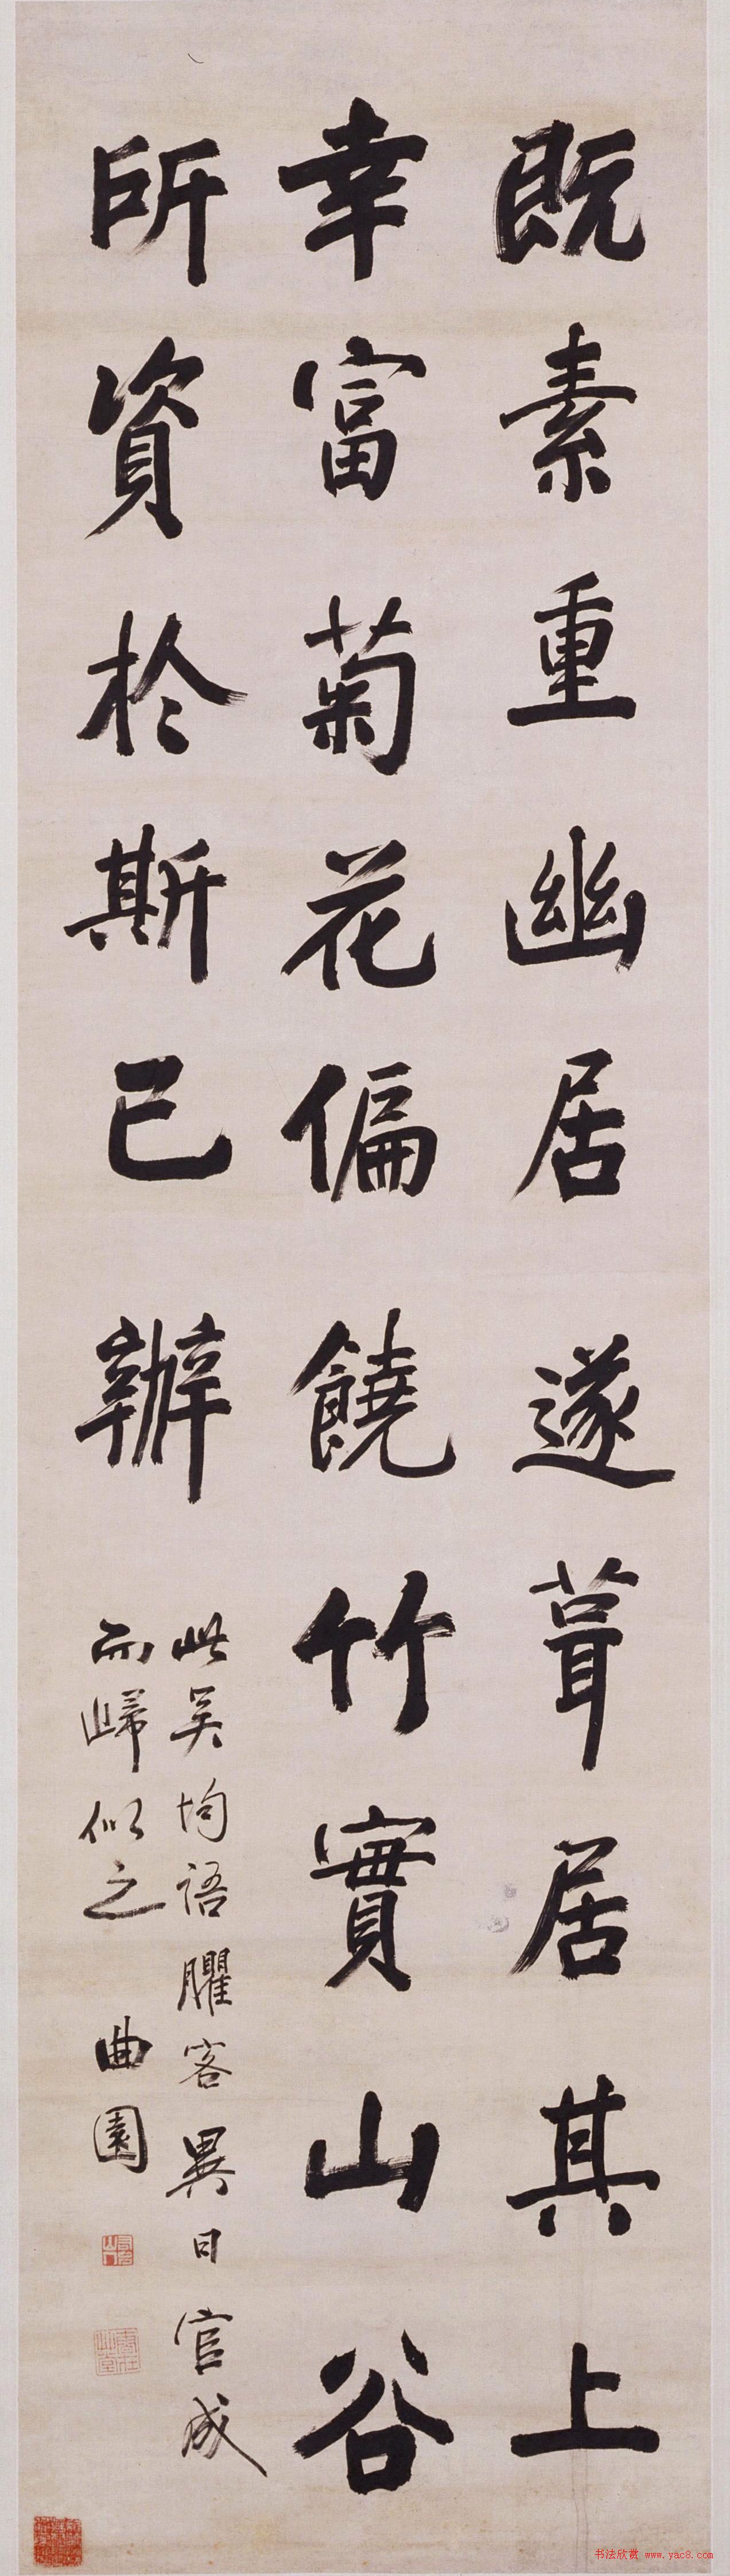 既素重幽居遂葺居其上
幸富菊花偏饒竹實山谷
所資於斯已辦
此吴均語臞客異日官成
而歸似之 曲園
书法欣赏 www.yac8.com